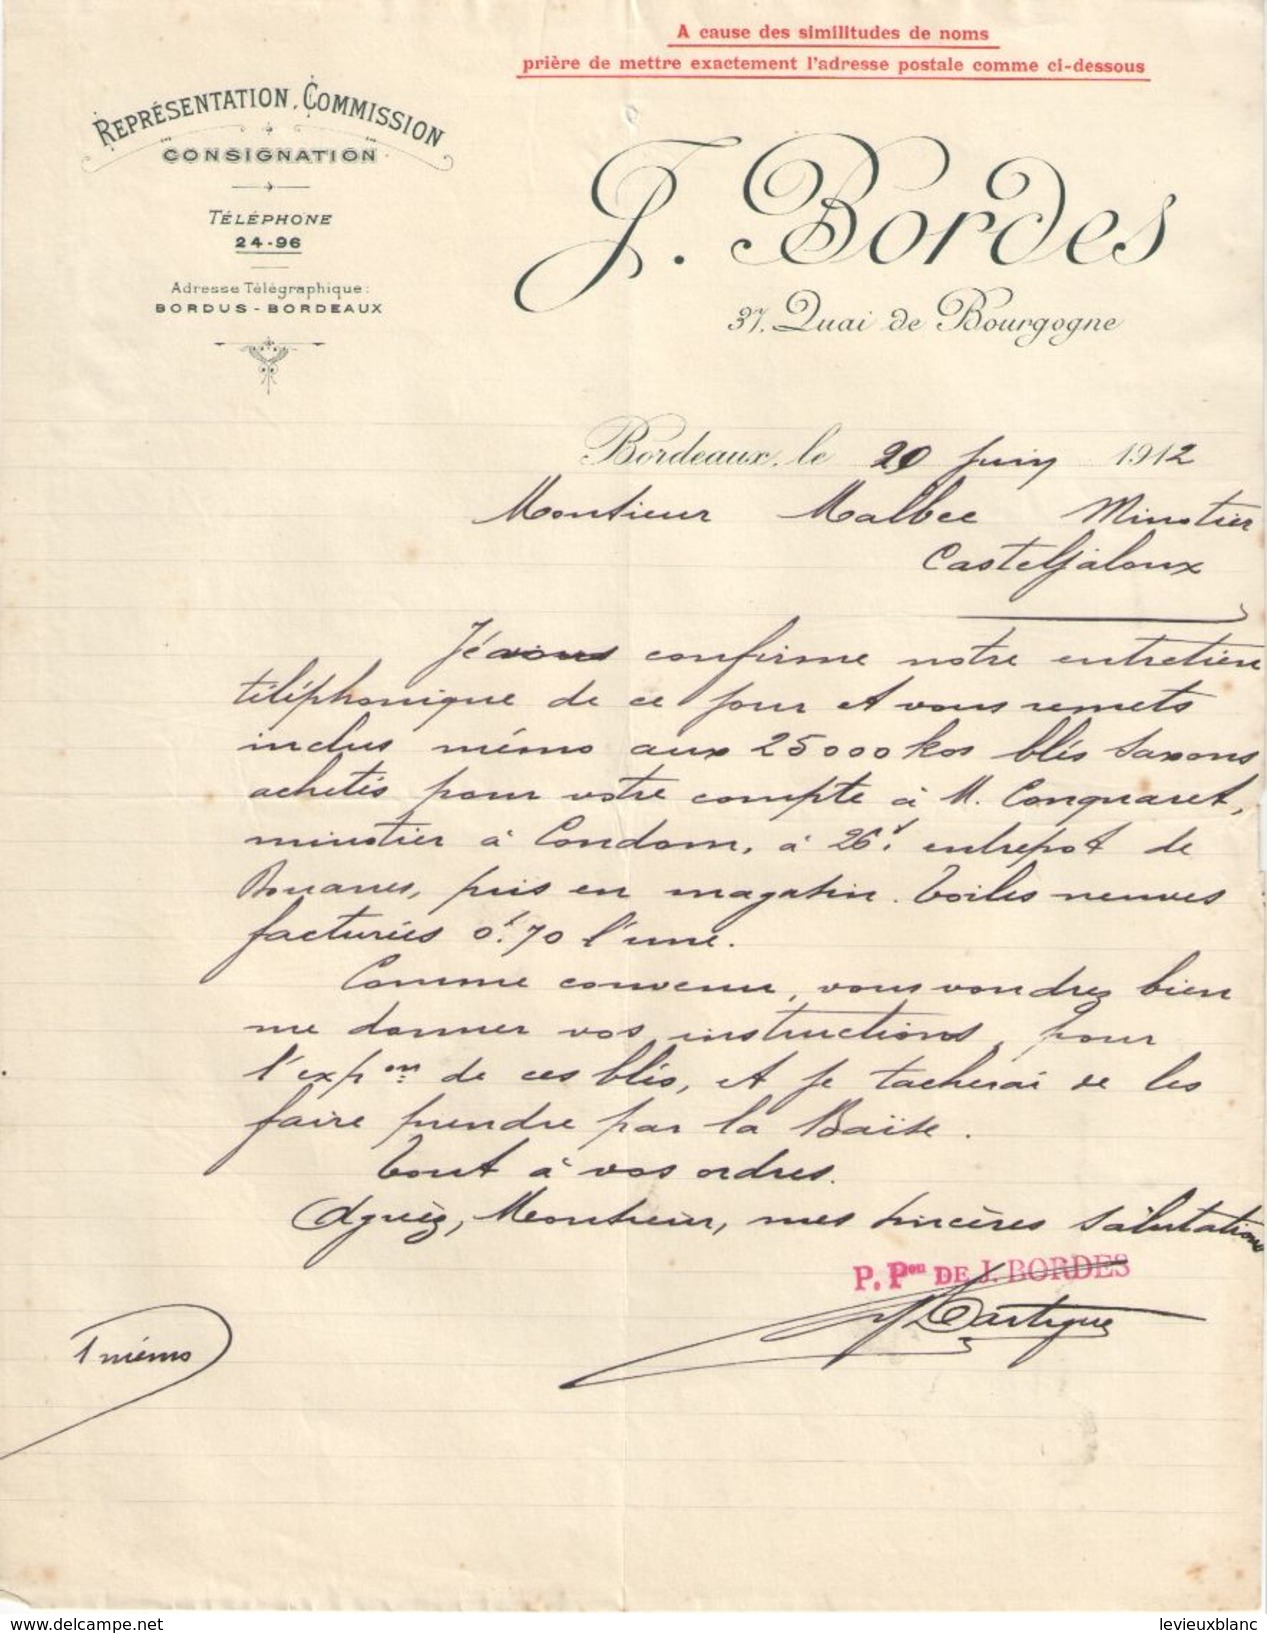 A cause des similitudes de noms
prière de mettre exactement l'adresse postale comme ci-dessous
REPRÉSENTATION, COMMISSION
CONSIGNATION
TÉLÉPHONE
24-96
Adresse Télégraphique:
BORDUS-BORDEAUX
J. Bordes
37, Quai de Bourgogne
Bordeaux, le 20 Juin 1912
Monsieur Malbec Minotier
Casteljaloux
Je vous confirme notre entretien
téléphonique de ce jour et vous remets
inclus mémo aux 25000 kos blés Saxons
achetés pour votre compte à M. Conquaret,
minotier à Condom, à 26f. entrepot de
Douanes, pris en magasin. Toiles neuves
facturées 0f.70 l'une.
Comme convenu, vous voudrez bien
me donner vos instructions, pour
l'expon de ces blés, et je tacherai de les
faire prendre par la Baïse.
Tout à vos ordres.
Agréez, Monsieur, mes sincères salutations
P. Pon DE J. BORDES
Lartigue
1 mémo
delcampe.net
levieuxblanc